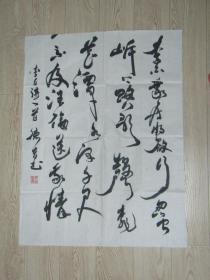 李白乘舟将欲行忽闻
岸上踏歌聲桃
花潭水深千尺
不及汪伦送我情
李白诗一首